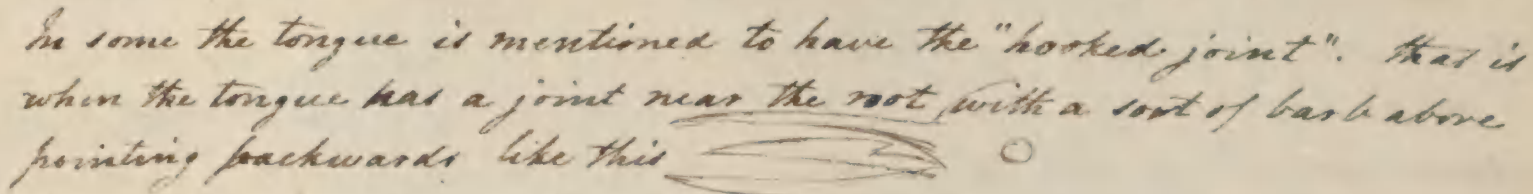 In some the tongue is mentioned to have the "hooked joint". that is
when the tongue has a joint near the root, with a sort of barb above
pointing backwards like this